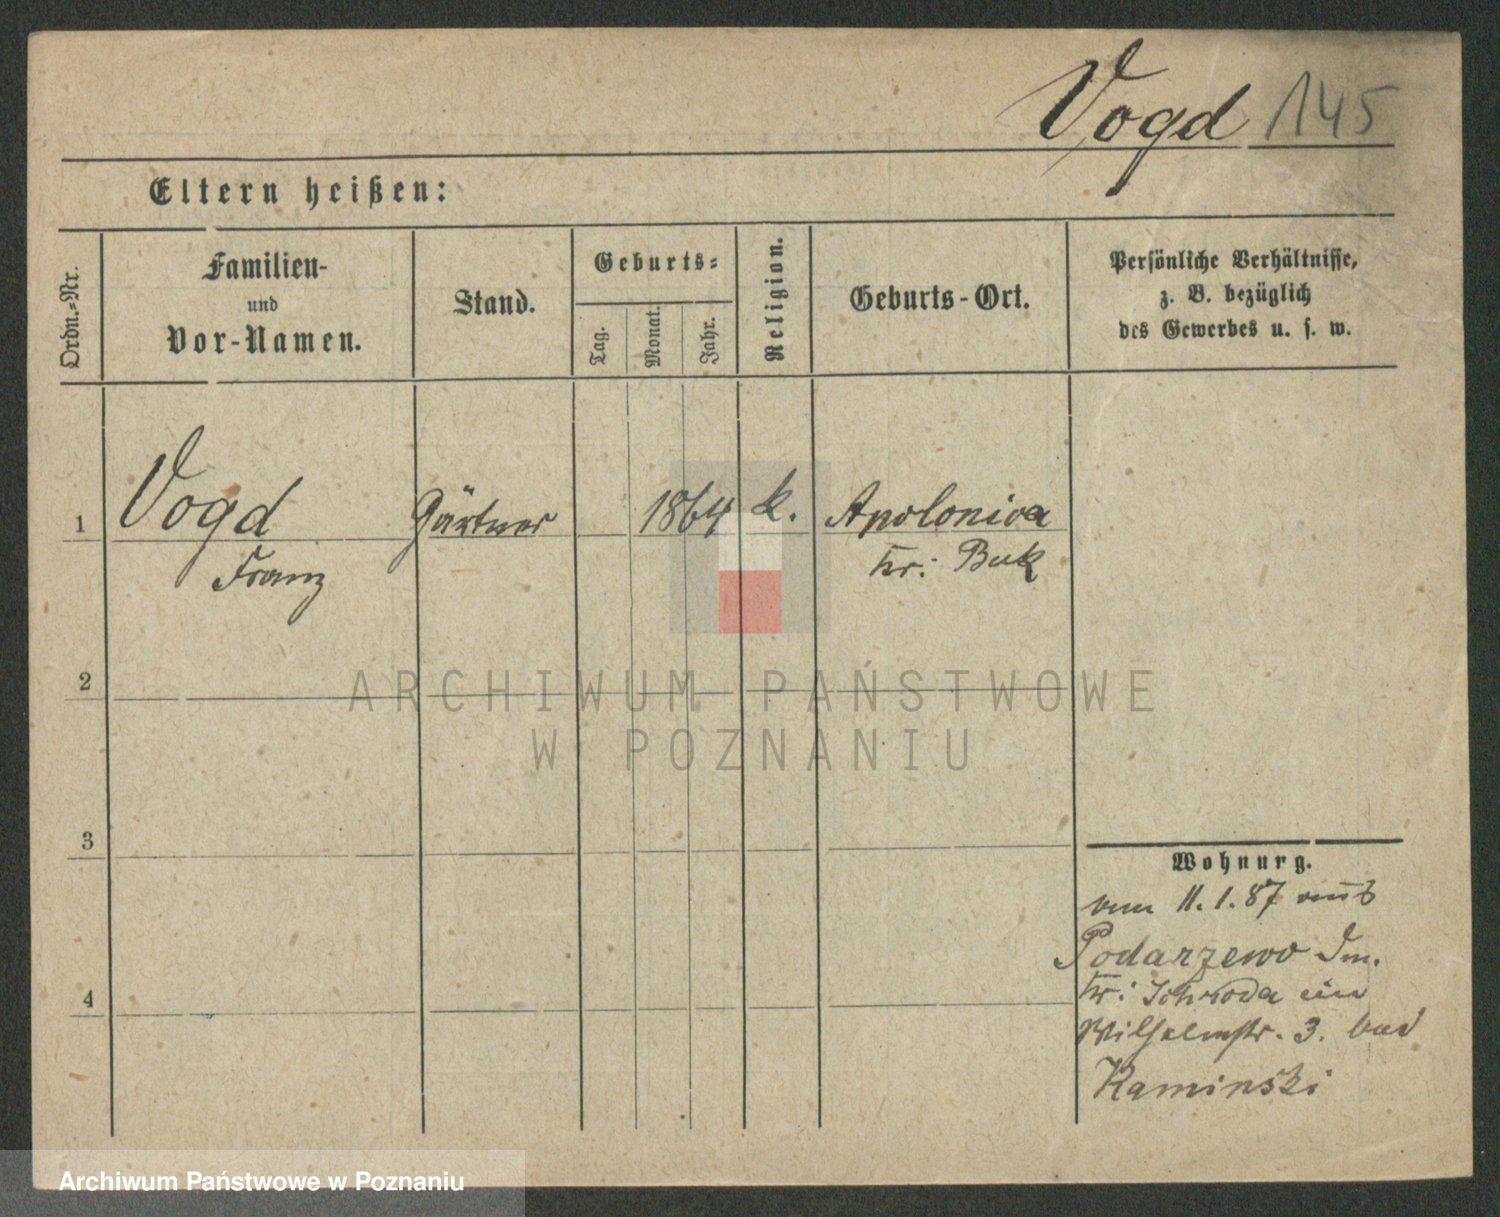 Vogd 145
Eltern heißen:
Ordn.-Nr.
Familien-
und
Vor-Namen.
Stand.
Geburts-
Tag.
Monat.
Jahr.
Religion.
Geburts-Ort.
Persönliche Verhältnisse,
z. B. bezüglich
des Gewerbes u. s. w.
1
Vogd
Franz
Gärtner
1864
k.
Apolonia
Kr: Buk
2
3
4
Wohnurg.
11.1.87 aus
Podarzewo Dm.
Kr: Schroda in
Wilhelmstr. 3. bei
Kaminski
ARCHIWUM PAŃSTWOWE
W POZNANIU
Archiwum Państwowe w Poznaniu